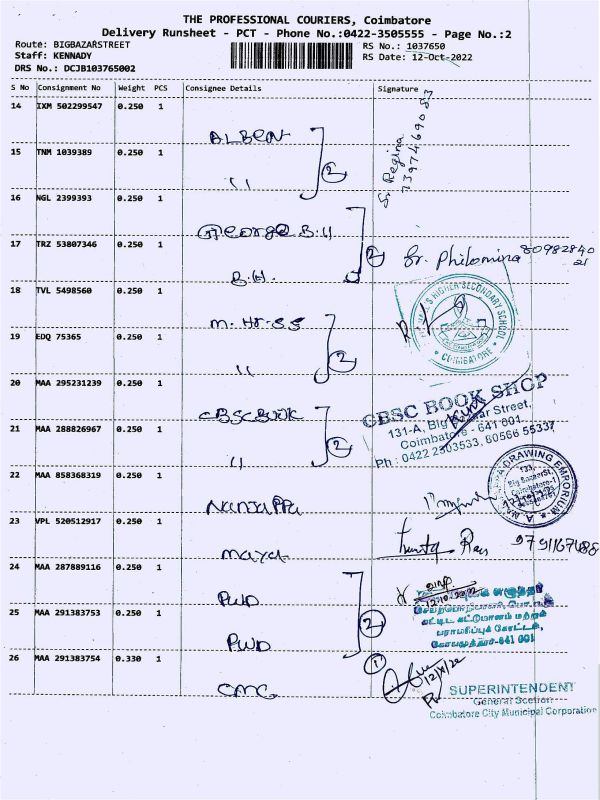 THE PROFESSIONAL COURIERS, Coimbatore
Delivery Runsheet - PCT - Phone No.:0422-3505555 - Page No.:2
Route: BIGBAZARSTREET
Staff: KENNADY
DRS No.: DCJB103765002
RS No.: 1037650
RS Date: 12-Oct-2022
S No Consignment No Weight PCS Consignee Details Signature
14 IXM 502299547 0.250 1
ALBERT
15 TNM 1039389 0.250 1
"
2
S. Regina
16 NGL 2399393 0.250 1
George B.H
17 TRZ 53807346 0.250 1
B.H.
2
Sr. Philomina 8098284021
18 TVL 5498560 0.250 1
M. Hr. SS
HIGHER SECONDARY SCHOOL
COIMBATORE
19 EDQ 75365 0.250 1
"
2
20 MAA 295231239 0.250 1
CBSCBOOK
CBSC BOOK SHOP
131-A, Big Bazaar Street,
Coimbatore - 641 001
Ph : 0422 2303533, 80566 55337
21 MAA 288826967 0.250 1
"
2
22 MAA 858368319 0.250 1
Nanjappa
DRAWING EMPORIUM
133,
Big Bazaar St,
Coimbatore-1
23 VPL 520512917 0.250 1
Maya
24 MAA 287889116 0.250 1
PWD
25 MAA 291383753 0.250 1
PWD
2
கட்டிட கட்டுமானம் மற்றும்
பராமரிப்புக் கோட்டம்,
கோயமுத்தூர்-641 001
26 MAA 291383754 0.330 1
CMC
1
12/X/22
SUPERINTENDENT
General Section
Coimbatore City Municipal Corporation